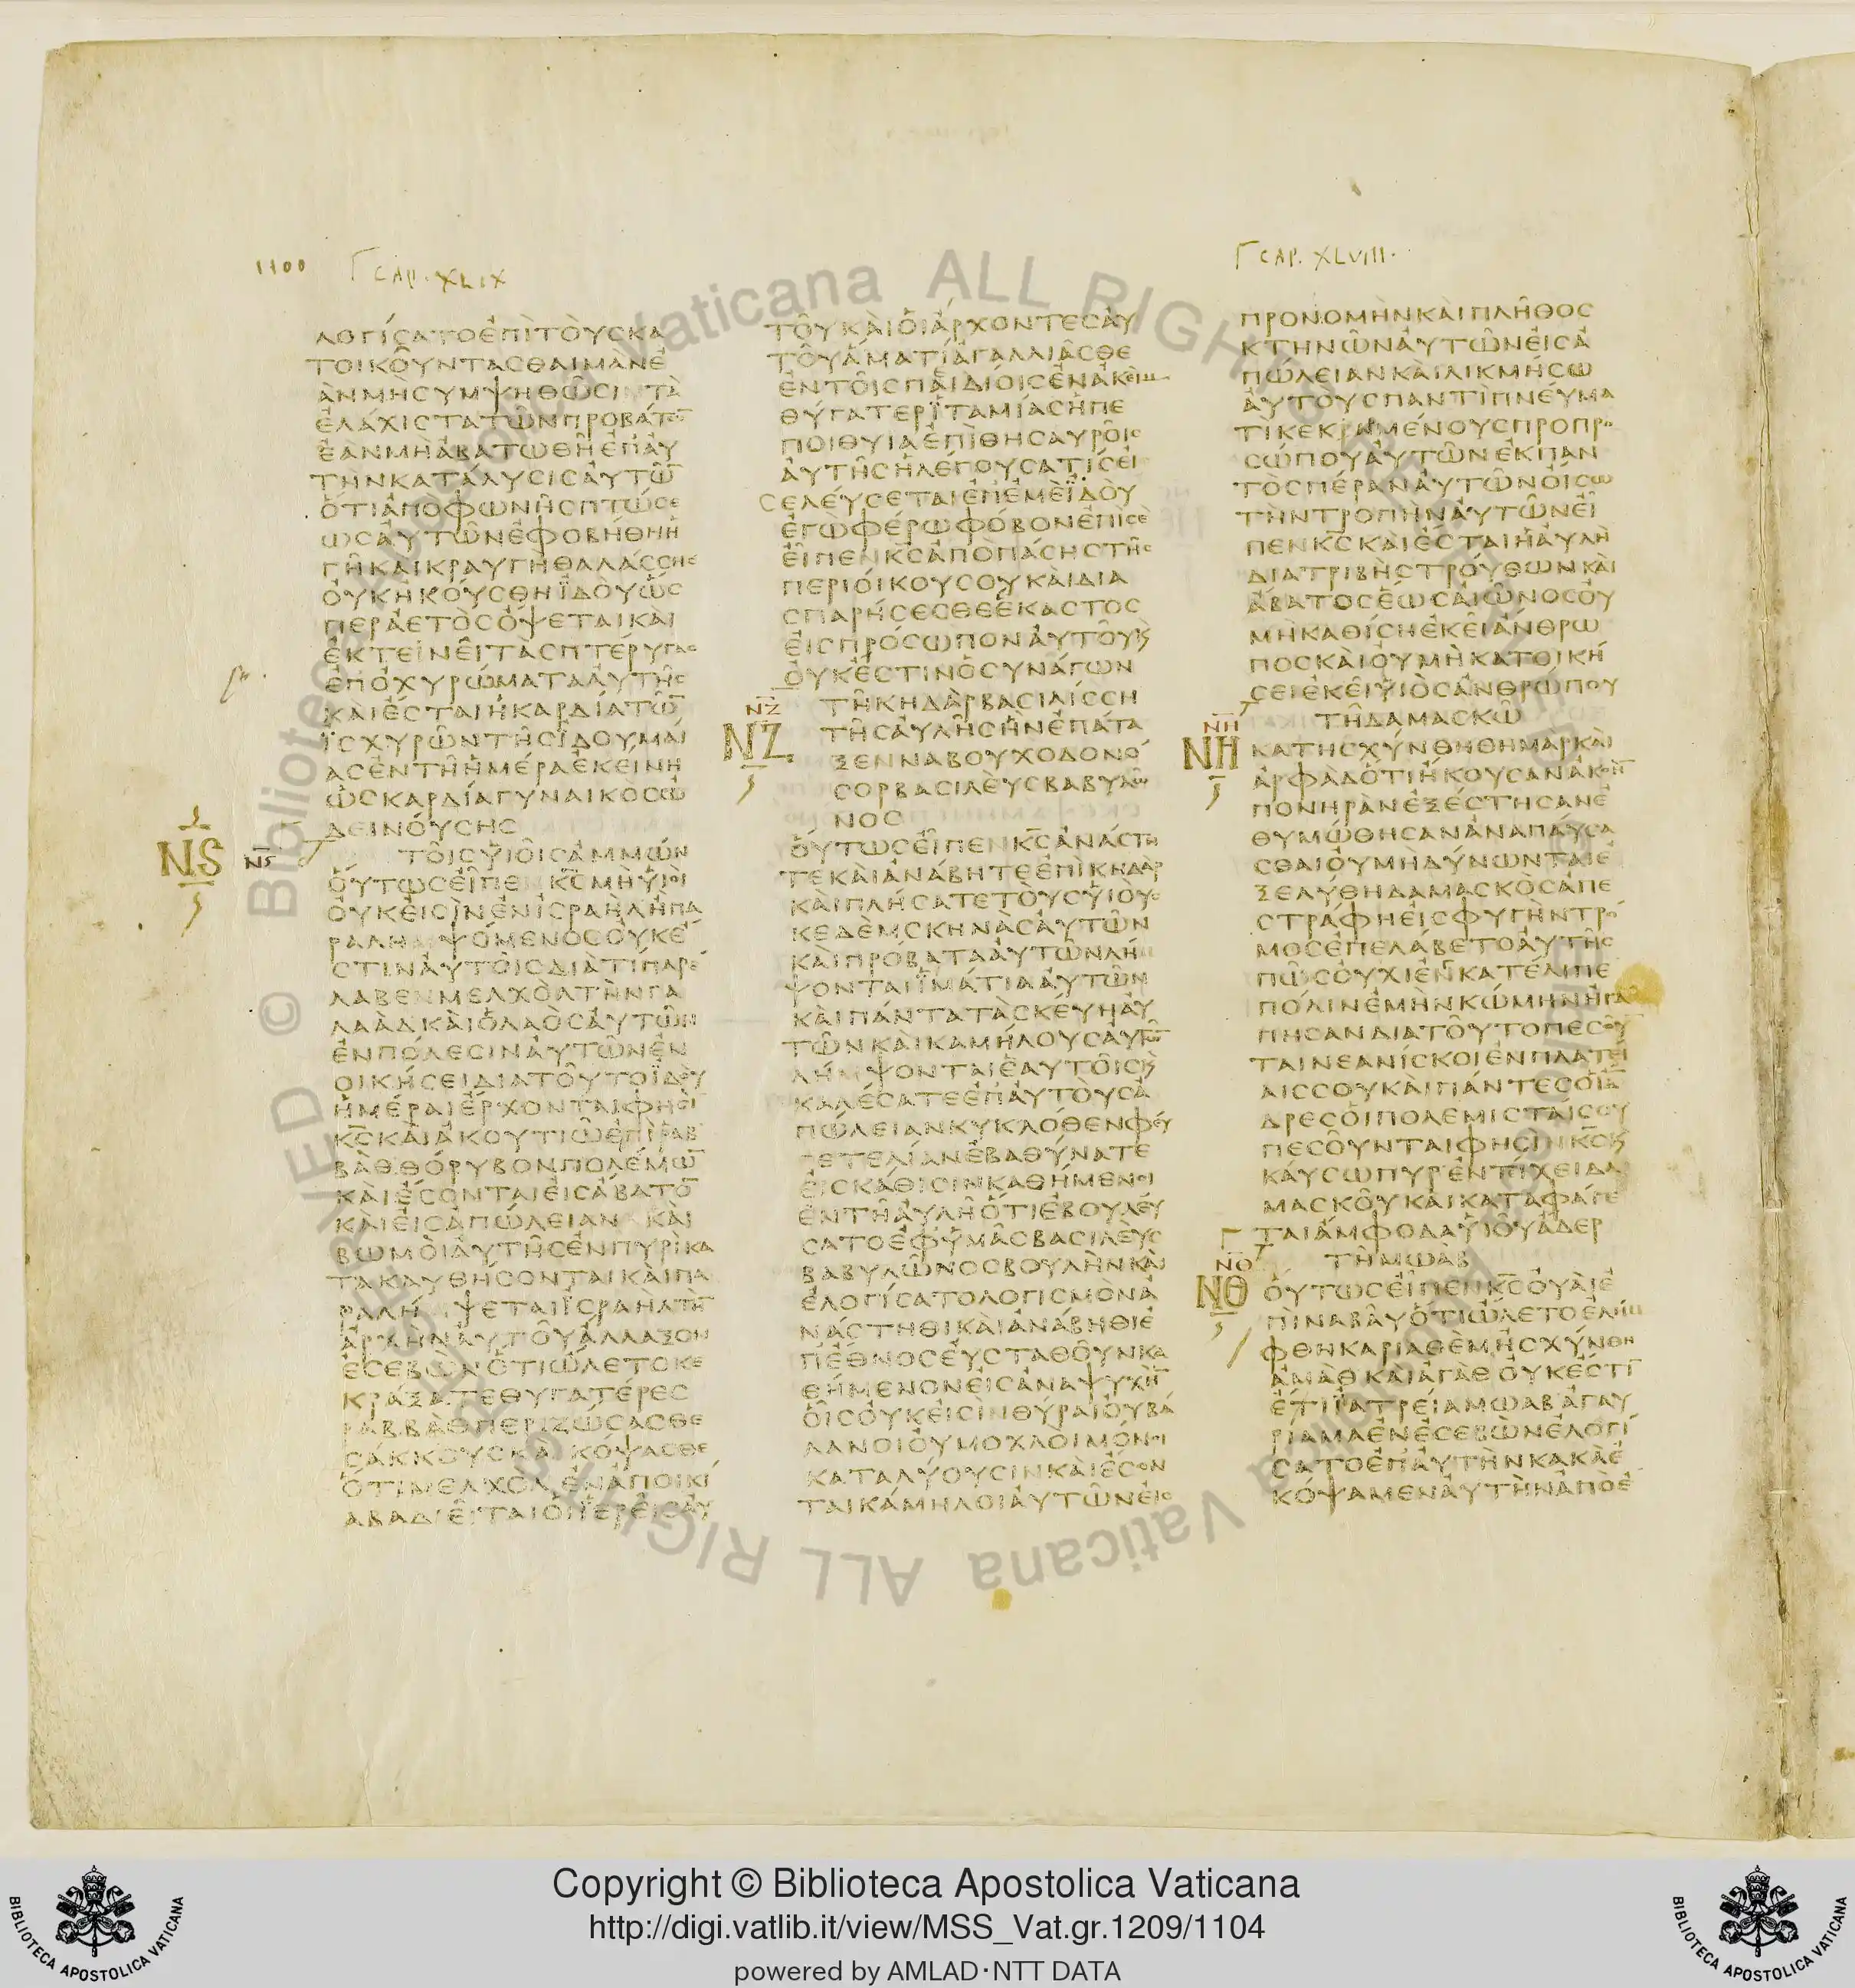 1100
CAP. XLIX
ΛΟΓΙϹΑΤΟΕΠΙΤΟΥϹΚΑ
ΤΟΙΚΟΥΝΤΑϹΘΑΙΜΑΝΕ
ΑΝΜΗϹΥΜΨΗΘΩϹΙΝΤΑ
ΕΛΑΧΙϹΤΑΤΩΝΠΡΟΒΑΤΩ̅
ΕΑΝΜΗΑΒΑΤΩΘΗΕΠΑΥ
ΤΗΝΚΑΤΑΛΥϹΙϹΑΥΤΩ̅
ΟΤΙΑΠΟΦΩΝΗϹΠΤΩϹΕ
ΩϹΑΥΤΩΝΕΦΟΒΗΘΗΗ
ΓΗΚΑΙΚΡΑΥΓΗΘΑΛΑϹϹΗϹ
ΟΥΚΗΚΟΥϹΘΗΙΔΟΥΩϹ
ΠΕΡΑΕΤΟϹΟΨΕΤΑΙΚΑΙ
ΕΚΤΕΙΝΕΙΤΑϹΠΤΕΡΥΓΑϹ
ΕΠΟΧΥΡΩΜΑΤΑΑΥΤΗϹ
ΚΑΙΕϹΤΑΙΗΚΑΡΔΙΑΤΩ̅
ΙϹΧΥΡΩΝΤΗϹΙΔΟΥΜΑΙ
ΑϹΕΝΤΗΗΜΕΡΑΕΚΕΙΝΗ
ΩϹΚΑΡΔΙΑΓΥΝΑΙΚΟϹΩ
ΔΕΙΝΟΥϹΗϹ
ΝϚ ΝϚ ΤΟΙϹΥΙΟΙϹΑΜΜΩΝ
ΟΥΤΩϹΕΙΠΕΝΚ̅Ϲ̅ΜΗΥΙΟΙ
ΟΥΚΕΙϹΙΝΕΝΙϹΡΑΗΛΗΠΑ
ΡΑΛΗΜΨΟΜΕΝΟϹΟΥΚΕ
ϹΤΙΝΑΥΤΟΙϹΔΙΑΤΙΠΑΡΕ
ΛΑΒΕΝΜΕΛΧΟΛΤΗΝΓΑ
ΛΑΑΔΚΑΙΟΛΑΟϹΑΥΤΩΝ
ΕΝΠΟΛΕϹΙΝΑΥΤΩΝΕΝ
ΟΙΚΗϹΕΙΔΙΑΤΟΥΤΟΙΔΟΥ
ΗΜΕΡΑΙΕΡΧΟΝΤΑΙΦΗϹΙ̅
Κ̅Ϲ̅ΚΑΙΑΚΟΥΤΙΩΕΠΙΡΑΒ
ΒΑΘΘΟΡΥΒΟΝΠΟΛΕΜΩ̅
ΚΑΙΕϹΟΝΤΑΙΕΙϹΑΒΑΤΟ̅
ΚΑΙΕΙϹΑΠΩΛΕΙΑΝΚΑΙ
ΒΩΜΟΙΑΥΤΗϹΕΝΠΥΡΙΚΑ
ΤΑΚΑΥΘΗϹΟΝΤΑΙΚΑΙΠΑ
ΡΑΛΗΜΨΕΤΑΙΙϹΡΑΗΛΤΗ̅
ΑΡΧΗΝΑΥΤΟΥΑΛΑΛΑΞΟΝ
ΕϹΕΒΩΝΟΤΙΩΛΕΤΟΚΕ
ΚΡΑΞΑΤΕΘΥΓΑΤΕΡΕϹ
ΡΑΒΒΑΘΠΕΡΙΖΩϹΑϹΘΕ
ϹΑΚΚΟΥϹΚΑΙΚΟΨΑϹΘΕ
ΟΤΙΜΕΛΧΟΛΕΝΑΠΟΙΚΙ
ΑΒΑΔΙΕΙΤΑΙΟΙΙΕΡΕΙϹΑΥ
ΤΟΥΚΑΙΟΙΑΡΧΟΝΤΕϹΑΥ
ΤΟΥΑΜΑΤΙΑΓΑΛΛΙΑϹΘΕ
ΕΝΤΟΙϹΠΑΙΔΙΟΙϹΕΝΑΚΕΙΜ
ΘΥΓΑΤΕΡΙΤΑΜΙΑϹΗΠΕ
ΠΟΙΘΥΙΑΕΠΙΘΗϹΑΥΡΟΙϹ
ΑΥΤΗϹΗΛΕΓΟΥϹΑΤΙϹΕΙ
ϹΕΛΕΥϹΕΤΑΙΕΠΕΜΕΙΔΟΥ
ΕΓΩΦΕΡΩΦΟΒΟΝΕΠΙϹΕ
ΕΙΠΕΝΚ̅Ϲ̅ΑΠΟΠΑϹΗϹΤΗϹ
ΠΕΡΙΟΙΚΟΥϹΟΥΚΑΙΔΙΑ
ϹΠΑΡΗϹΕϹΘΕΕΚΑϹΤΟϹ
ΕΙϹΠΡΟϹΩΠΟΝΑΥΤΟΥΚ
ΟΥΚΕϹΤΙΝΟϹΥΝΑΓΩΝ
ΝΖ ΝΖ ΤΗΚΗΔΑΡΒΑϹΙΛΙϹϹΗ
ΤΗϹΑΥΛΗϹΗΝΕΠΑΤΑ
ΞΕΝΝΑΒΟΥΧΟΔΟΝΟ
ϹΟΡΒΑϹΙΛΕΥϹΒΑΒΥΛΩ
ΝΟϹ
ΟΥΤΩϹΕΙΠΕΝΚ̅Ϲ̅ΑΝΑϹΤΗ
ΤΕΚΑΙΑΝΑΒΗΤΕΕΠΙΚΗΔΑΡ
ΚΑΙΠΛΗϹΑΤΕΤΟΥϹΥΙΟΥϹ
ΚΕΔΕΜϹΚΗΝΑϹΑΥΤΩΝ
ΚΑΙΠΡΟΒΑΤΑΑΥΤΩΝΛΗΜ
ΨΟΝΤΑΙΙΜΑΤΙΑΑΥΤΩΝ
ΚΑΙΠΑΝΤΑΤΑϹΚΕΥΗΑΥ
ΤΩΝΚΑΙΚΑΜΗΛΟΥϹΑΥΤΩ̅
ΛΗΜΨΟΝΤΑΙΕΑΥΤΟΙϹΚ
ΚΑΛΕϹΑΤΕΕΠΑΥΤΟΥϹΑ
ΠΩΛΕΙΑΝΚΥΚΛΟΘΕΝΦΕΥ
ΓΕΤΕΛΙΑΝΕΒΑΘΥΝΑΤΕ
ΕΙϹΚΑΘΙϹΙΝΚΑΘΗΜΕΝΟΙ
ΕΝΤΗΑΥΛΗΟΤΙΕΒΟΥΛΕΥ
ϹΑΤΟΕΦΥΜΑϹΒΑϹΙΛΕΥϹ
ΒΑΒΥΛΩΝΟϹΒΟΥΛΗΝΚΑΙ
ΕΛΟΓΙϹΑΤΟΛΟΓΙϹΜΟΝΑ
ΝΑϹΤΗΘΙΚΑΙΑΝΑΒΗΘΙΕ
ΠΕΘΝΟϹΕΥϹΤΑΘΟΥΝΚΑ
ΘΗΜΕΝΟΝΕΙϹΑΝΑΨΥΧΗ̅
ΟΙϹΟΥΚΕΙϹΙΝΘΥΡΑΙΟΥΒΑ
ΛΑΝΟΙΟΥΜΟΧΛΟΙΜΟΝΟΙ
ΚΑΤΑΛΥΟΥϹΙΝΚΑΙΕϹΟΝ
ΤΑΙΚΑΜΗΛΟΙΑΥΤΩΝΕΙϹ
CAP. XLVIII.
ΠΡΟΝΟΜΗΝΚΑΙΠΛΗΘΟϹ
ΚΤΗΝΩΝΑΥΤΩΝΕΙϹΑ
ΠΩΛΕΙΑΝΚΑΙΛΙΚΜΗϹΩ
ΑΥΤΟΥϹΠΑΝΤΙΠΝΕΥΜΑ
ΤΙΚΕΚΑΡΜΕΝΟΥϹΠΡΟΠΡΟ
ϹΩΠΟΥΑΥΤΩΝΕΚΠΑΝ
ΤΟϹΠΕΡΑΝΑΥΤΩΝΟΙϹΩ
ΤΗΝΤΡΟΠΗΝΑΥΤΩΝΕΙ
ΠΕΝΚ̅Ϲ̅ΚΑΙΕϹΤΑΙΗΑΥΛΗ
ΔΙΑΤΡΙΒΗϹΤΡΟΥΘΩΝΚΑΙ
ΑΒΑΤΟϹΕΩϹΑΙΩΝΟϹΟΥ
ΜΗΚΑΘΙϹΗΕΚΕΙΑΝΘΡΩ
ΠΟϹΚΑΙΟΥΜΗΚΑΤΟΙΚΗ
ϹΕΙΕΚΕΙΥΙΟϹΑΝΘΡΩΠΟΥ
ΝΗ ΝΗ ΤΗΔΑΜΑϹΚΩ
ΚΑΤΗϹΧΥΝΘΗΗΜΑΡΚΑΙ
ΑΡΦΑΔΟΤΙΗΚΟΥϹΑΝΑΚΟΗ̅
ΠΟΝΗΡΑΝΕΞΕϹΤΗϹΑΝΕ
ΘΥΜΩΘΗϹΑΝΑΝΑΠΑΥϹΑ
ϹΘΑΙΟΥΜΗΔΥΝΩΝΤΑΙΕ
ΞΕΛΥΘΗΔΑΜΑϹΚΟϹΑΠΕ
ϹΤΡΑΦΗΕΙϹΦΥΓΗΝΤΡΟ
ΜΟϹΕΠΕΛΑΒΕΤΟΑΥΤΗϹ
ΠΩϹΟΥΧΙΕΝΚΑΤΕΛΙΠΕ
ΠΟΛΙΝΕΜΗΝΚΩΜΗΝΗΓΑ
ΠΗϹΑΝΔΙΑΤΟΥΤΟΠΕϹΟΥ̅
ΤΑΙΝΕΑΝΙϹΚΟΙΕΝΠΛΑΤΕΙ
ΑΙϹϹΟΥΚΑΙΠΑΝΤΕϹΟΙΑ̅
ΔΡΕϹΟΙΠΟΛΕΜΙϹΤΑΙϹΟΥ
ΠΕϹΟΥΝΤΑΙΦΗϹΙΝΚ̅Ϲ̅Κ
ΚΑΥϹΩΠΥΡΕΝΤΙΧΕΙΔΑ
ΜΑϹΚΟΥΚΑΙΚΑΤΑΦΑΓΕ
ΤΑΙΑΜΦΟΔΑΥΙΟΥΑΔΕΡ
ΝΘ ΝΘ ΤΗΜΩΑΒ
ΟΥΤΩϹΕΙΠΕΝΚ̅Ϲ̅ΟΥΑΙΕ
ΠΙΝΑΒΑΥΟΤΙΩΛΕΤΟΕΛΗΜ
ΦΘΗΚΑΡΙΑΘΕΜΗϹΧΥΝΘΗ
ΑΜΑΘΚΑΙΑΓΑΘΟΥΚΕϹΤΙ̅
ΕΤΙΙΑΤΡΕΙΑΜΩΑΒΑΓΑΥ
ΡΙΑΜΑΕΝΕϹΕΒΩΝΕΛΟΓΙ
ϹΑΤΟΕΠΑΥΤΗΝΚΑΚΑΕ
ΚΟΨΑΜΕΝΑΥΤΗΝΑΠΟΕ
Copyright © Biblioteca Apostolica Vaticana
http://digi.vatlib.it/view/MSS_Vat.gr.1209/1104
powered by AMLAD·NTT DATA
BIBLIOTECA APOSTOLICA VATICANA
BIBLIOTECA APOSTOLICA VATICANA
© Biblioteca Apostolica Vaticana ALL RIGHTS RESERVED